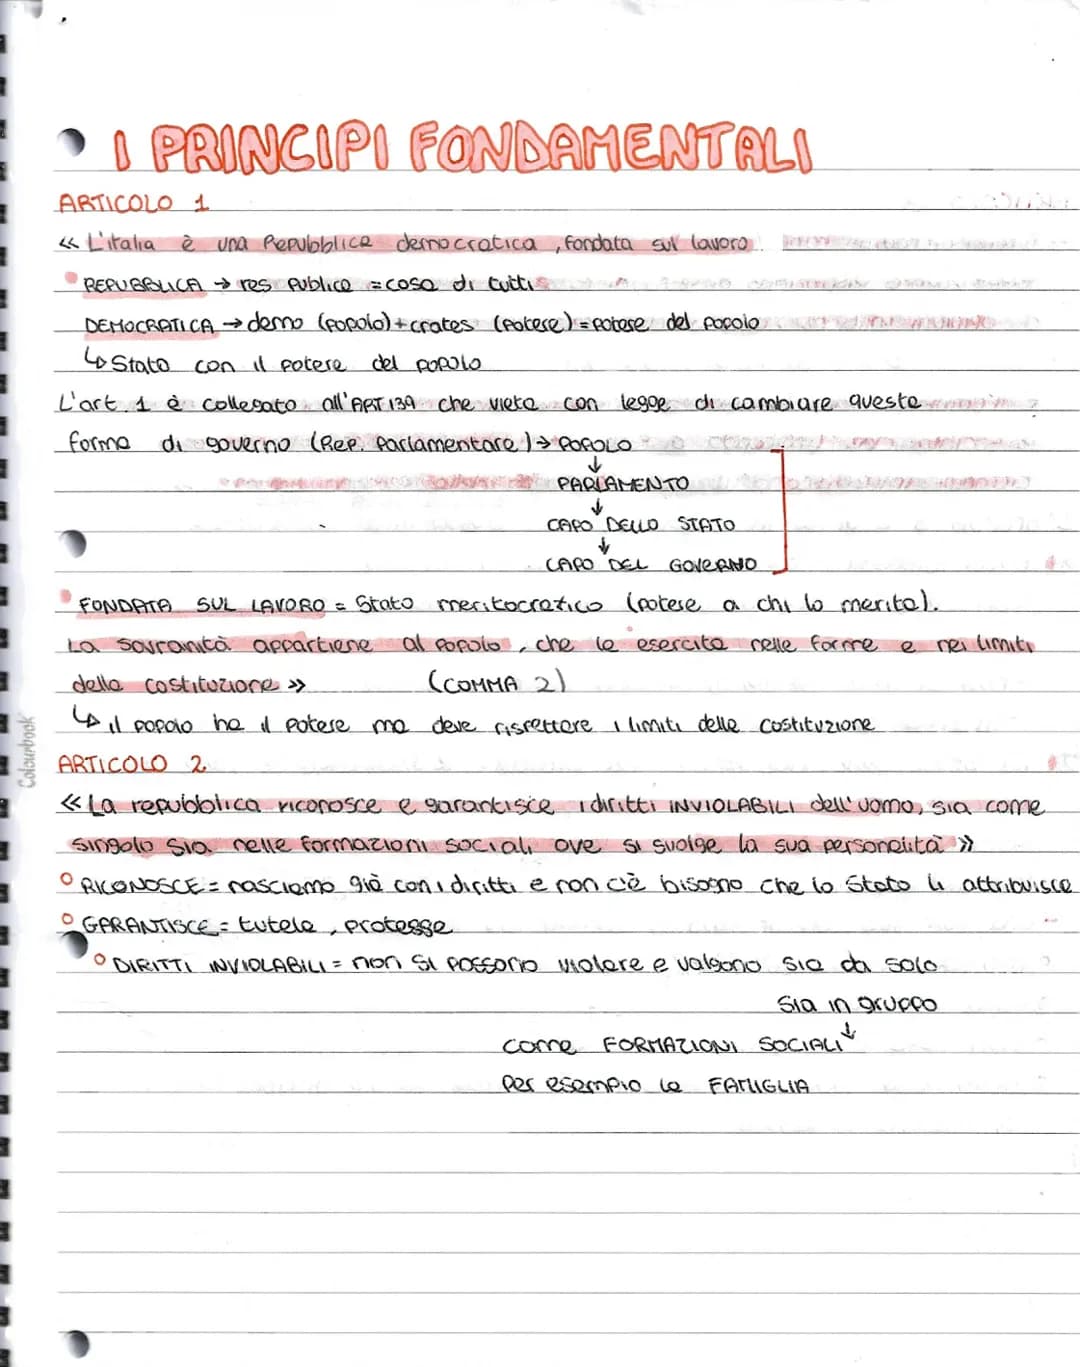 I PRINCIPI FONDAMENTALI
ARTICOLO 1
<< L'italia è una Repubblica democratica, fondata sul lavoro.
REPUBBLICA → res publica = cosa di tutti
DEMOCRATICA → demo (popolo) + crates (potere) = potere del popolo
↳ Stato con il potere del popolo
L'art. 1 è collegato all'ART 139 che vieta con legge di cambiare questa
forma di governo (Rep. Parlamentare) → POPOLO
↓
PARLAMENTO
↓
CAPO DELLO STATO
↓
CAPO DEL GOVERNO
FONDATA SUL LAVORO = Stato meritocratico (potere a chi lo merita).
La sovranità appartiene al popolo, che la esercita nelle forme e nei limiti
della costituzione >> (COMMA 2)
↳ il popolo ha il potere ma deve rispettare i limiti della costituzione
ARTICOLO 2
<< La repubblica riconosce e garantisce i diritti INVIOLABILI dell'uomo, sia come
singolo sia nelle formazioni sociali ove si svolge la sua personalità >>
RICONOSCE = nasciamo già con i diritti e non c'è bisogno che lo Stato li attribuisce
GARANTISCE = tutela, protegge
DIRITTI INVIOLABILI = non si possono violare e valgono sia da solo
sia in gruppo
↓
come FORMAZIONI SOCIALI
per esempio la FAMIGLIA
Colourbook